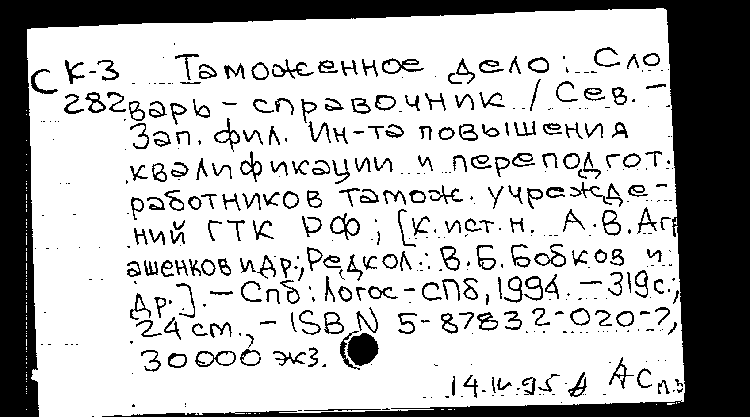 С К-3 Таможенное дело: Сло
282 варь-справочник / Сев.-
Зап. фил. Ин-та повышения
квалификации и переподгот.
работников тамож. учрежде-
ний ГТК РФ; [К.ист.н. А.В.Агр
ашенков и др.; Редкол.: В.Б.Бобков и
др.]. - Спб: Логос-СПб, 1994. - 319с.;
24 см., - ISBN 5-87832-020-7,
30000 экз.
14.IV.95 АС